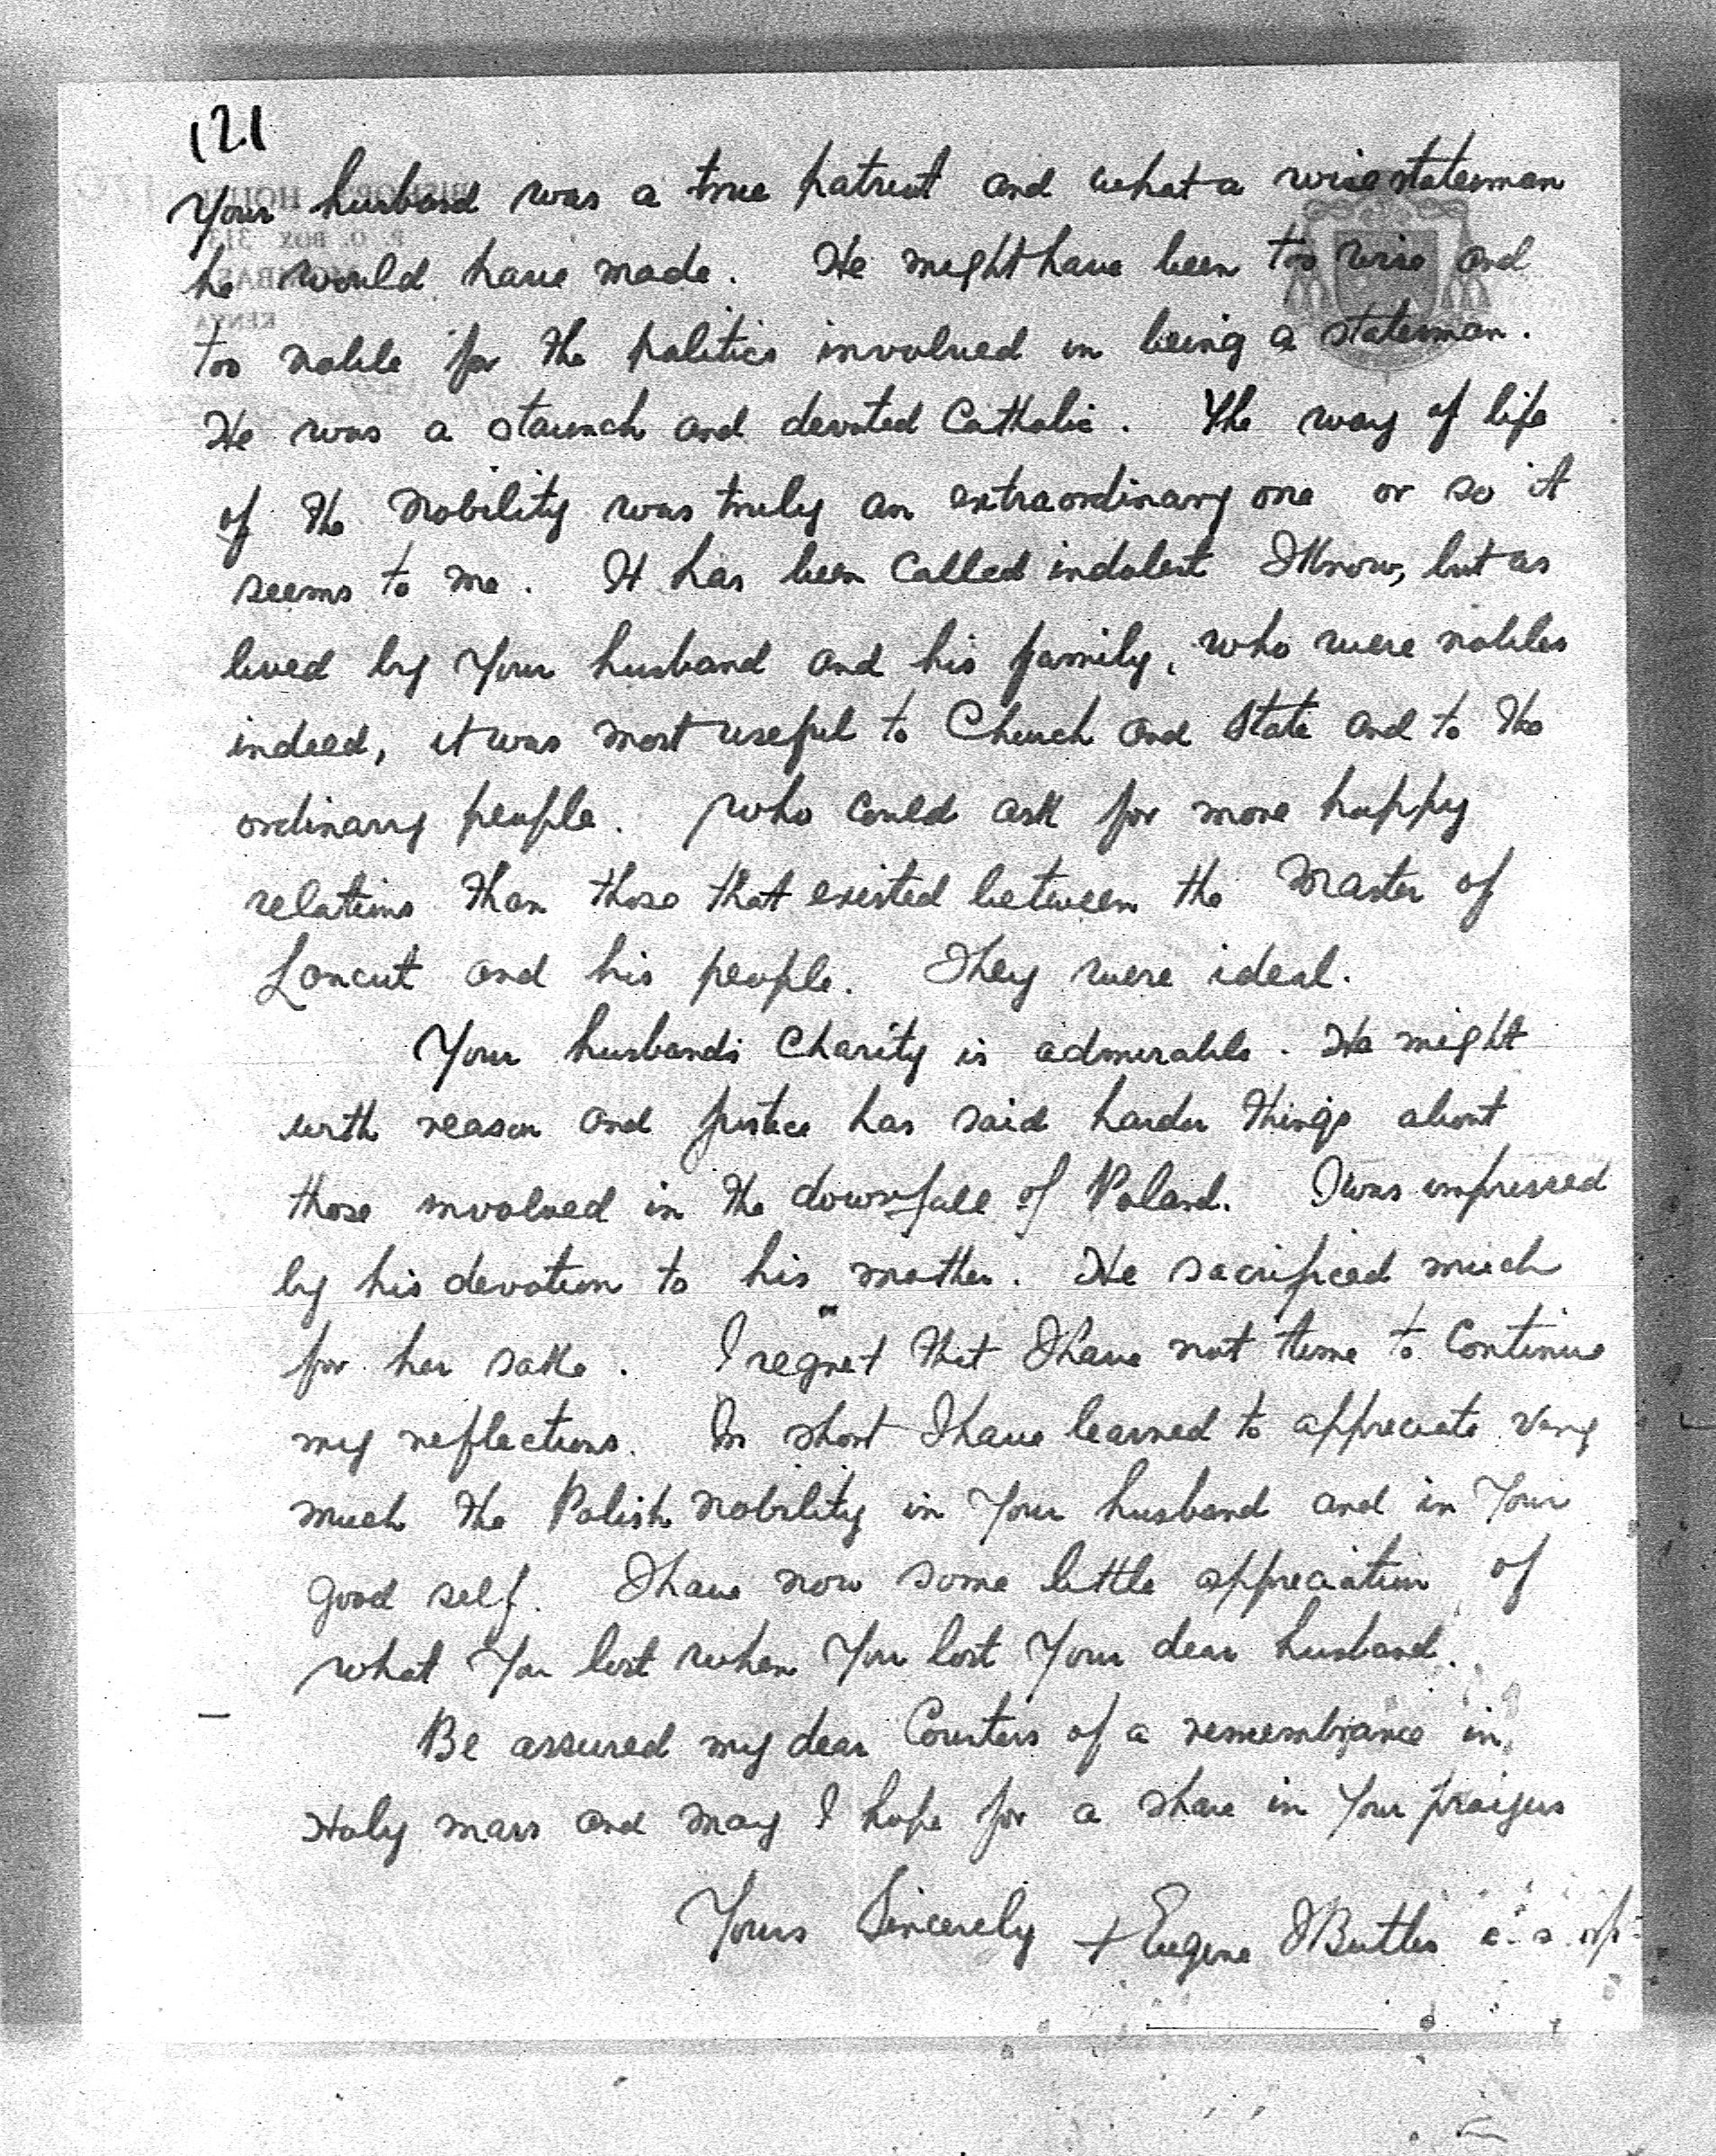 121
Your husband was a true patriot and what a wise statesman
he would have made. He might have been too wise and
too noble for the politics involved in being a statesman.
He was a staunch and devoted Catholic. The way of life
of the nobility was truly an extraordinary one or so it
seems to me. It has been called indolent I know, but as
lived by your husband and his family, who were nobles
indeed, it was most useful to Church and State and to the
ordinary people. Who could ask for more happy
relations than those that existed between the Master of
Lancut and his people. They were ideal.
Your husband's Charity is admirable. He might
with reason and justice has said harder things about
those involved in the downfall of Poland. I was impressed
by his devotion to his mother. He sacrificed much
for her sake. I regret that I have not time to continue
my reflections. In short I have learned to appreciate very
much the Polish nobility in your husband and in your
good self. I have now some little appreciation of
what you lost when you lost your dear husband.
Be assured my dear Countess of a remembrance in
Holy Mass and may I hope for a share in your prayers
Yours Sincerely + Eugene J Butler c.s.sp.
BISHOP'S HOUSE
P. O. BOX 313
KENYA